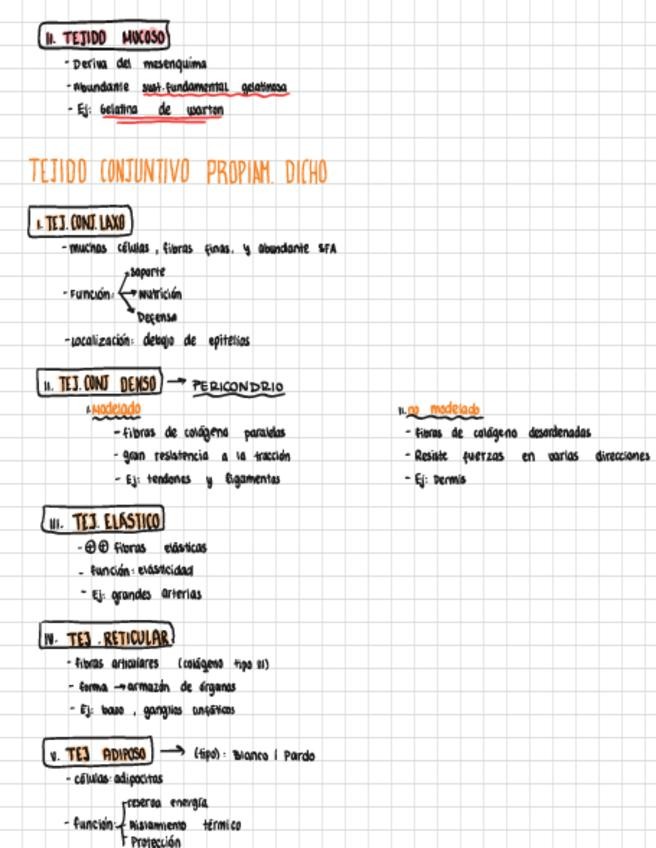 II. TEJIDO MUCOSO
- Deriva del mesenquima
- Abundante sust. fundamental gelatinosa
- Ej: Gelatina de warton
TEJIDO CONJUNTIVO PROPIAM. DICHO
I. TEJ. CONJ. LAXO
- muchas células, fibras finas, y abundante SFA
- Función: soporte
Nutrición
Defensa
- Localización: debajo de epitelios
II. TEJ. CONJ DENSO → PERICONDRIO
I. Modelado
- fibras de colágeno paralelas
- gran resistencia a la tracción
- Ej: tendones y ligamentos
II. no modelado
- fibras de colágeno desordenadas
- Resiste fuerzas en varias direcciones
- Ej: Dermis
III. TEJ. ELÁSTICO
- ⊕⊕ fibras elásticas
- función: elasticidad
- Ej: grandes arterias
IV. TEJ. RETICULAR
- fibras articulares (colágeno tipo III)
- forma → armazón de órganos
- Ej: bazo, ganglios linfáticos
V. TEJ ADIPOSO → (tipo): Blanco / Pardo
- células: adipocitos
- función: reserva energía
Aislamiento térmico
Protección